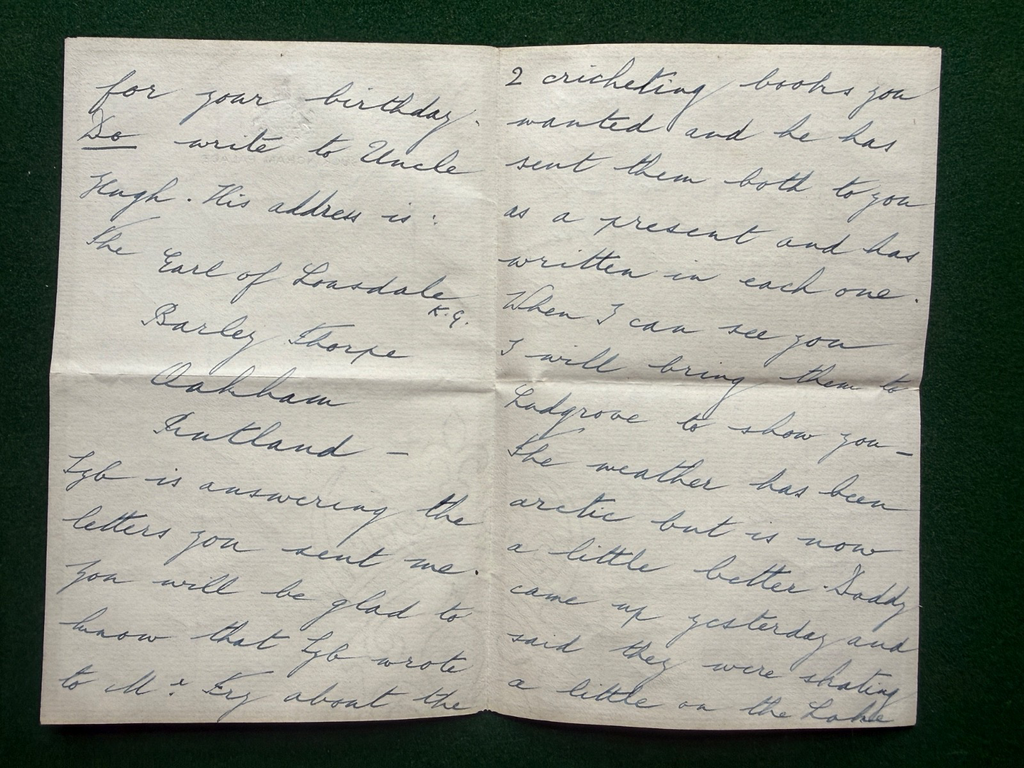 for your birthday.
Do write to Uncle
Hugh. His address is:
The Earl of Lonsdale
K.G.
Barley Thorpe
Oakham
Rutland -
Igb is answering the
letters you sent me.
You will be glad to
know that Igb wrote
to Mr Fry about the
2 cricketing books you
wanted and he has
sent them both to you
as a present and has
written in each one.
When I can see you
I will bring them to
Ludgrove to show you -
The weather has been
arctic but is now
a little better. Daddy
came up yesterday and
said they were skating
a little on the Lake